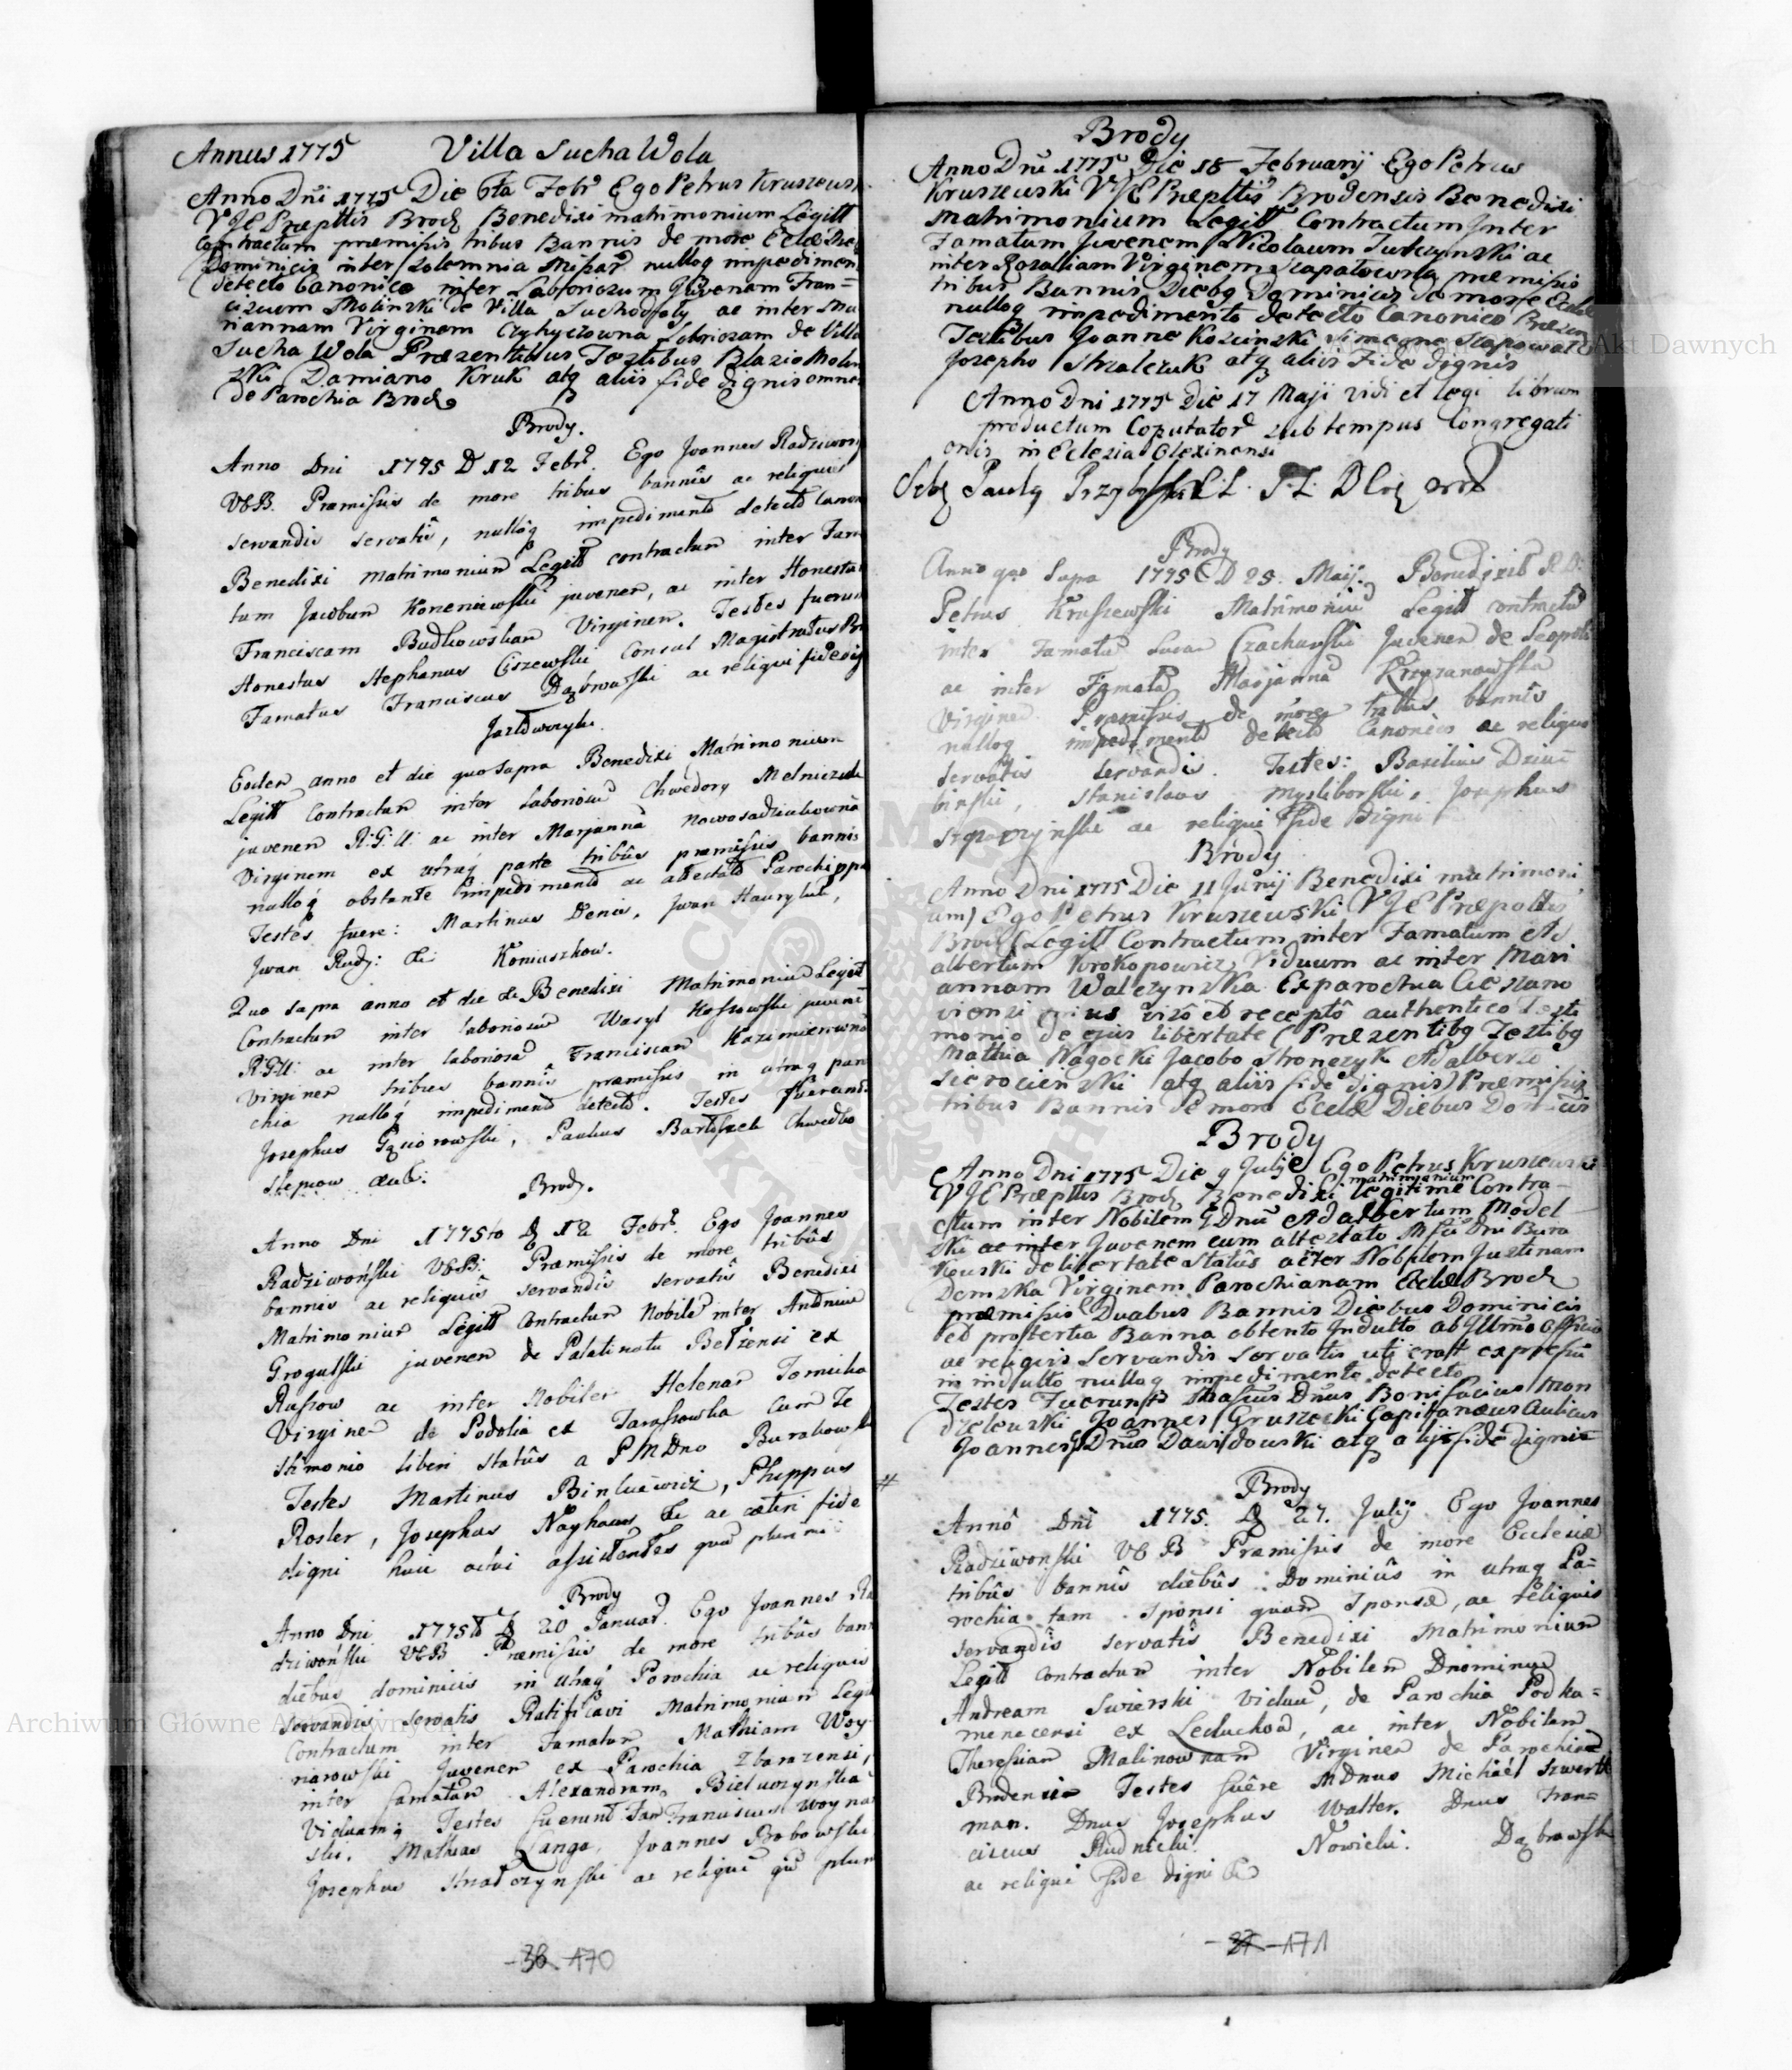 Annus 1775 Villa Sucha Wola
Anno Dni 1775 Die 6ta Febr Ego Petrus Kruszews
VJE Præpttis Brod Benedixi matrimonium Legitt
contractum præmissis tribus Bannis de more Eclæ Die
Dominicis inter solemnia Missar nulloq impedimen
detecto Canonico inter Laboriosum Juvenem Fran=
ciscum Molinski de Villa Suchodoly ac inter Ma
riannam Virginem Czyhyrowna Laboriosam de Villa
Sucha Wola Præzentibus Testibus Blazio Molin
ski Damiano Kruk atq aliis fide dignis omne
de Parochia Brod
Brody.
Anno Dni 1775 D 12 Febr. Ego Joannes Radziwon
VEB. Præmissis de more tribus bannis ac reliquis
servandis servatis, nulloq impedimento detecto Canon
Benedixi matrimonium Legitt contractum inter Fam
tum Jacobum Koneniewski juvenem, ac inter Honesta
Franciscam Budkowskam Virginem. Testes fuerun
Honestus Stephanus Ciszewski Consul Magistratus Br
Famatus Franciscus Dąbrowski ac reliqui fide dig

Eodem anno et die quo supra Benedixi Matrimonium
Legitt Contractum inter laboriosum Chwedory Melniczuk
juvenem R:G:U: ac inter Marjanna Nowosadziukowna
Virginem ex utraq parte tribus præmissis bannis
nulloq obstante impedimento ac
Testes fuere: Martinus Denis, Jwan Hawryluk,
Jwan Rudy: &c Koniuszkow.
Quo supra anno et die Benedixi Matrimonium Legitt
Contractum inter laboriosum Wasyl Kossowski juvene
RGU: ac inter laboriosa Franciscam Kazimierowna
Virginem tribus bannis præmissis in utraq paro
chia nulloq impedimento detecto. Testes fuerunt
Josephus Gąsiorowski, Paulus Bartoszek Chwedko
Slepiow
Brody.
Anno Dni 1775to D 12 Febr. Ego Joannes
Radziwoński VEB: Præmissis de more tribus
bannis ac reliquis servandis servatis Benedixi
Matrimonium Legitt Contractum Nobilem inter Andream
Grogulski juvenem de Palatinatu Belzensi ex
Russow ac inter Nobilem Helenam Tomicka
Virginem de Podolia ex Taraszowka Cum Te
stimonio liberi status a PMDno Burakowsk
Testes Martinus Binkiewicz, Philippus
Rosler, Josephus Nayhaus &c ac cæteri fide
digni huic actui assistentes quam plurimi
Brody
Anno Dni 1775to D 20 Januar. Ego Joannes Ra
dziwoński VEB Præmissis de more tribus bann
diebus dominicis in utraq Parochia ac reliquis
servandis servatis Ratificavi Matrimonium Legit
Contractum inter Famatum Mathiam Woy
niarowski Juvenem ex Parochia Zbarazensi,
inter famatam Alexandram Bieluczynska
Viduam; Testes fuerunt Fam Franciscus Woyna
ski. Mathias Lango, Joannes Bobowski
Josephus Strzałczynski ac reliqui qm plur
-36- 170
Brody
Anno Dni 1775 Die 18 Februarij Ego Petrus
Kruszewski VJE Præpttis Brodensis Benedixi
Matrimonium Legitt Contractum Inter
Famatum Juvenem Nicolaum Turczynski ac
inter Rozaliam Virginem Szapałowna præmissis
tribus Bannis Diebq Dominicis de more Eclæ
nulloq impedimento detecto Canonico Præzen
Testibus Joanne Kozinski Simeone Szapował
Josepho Strzalczuk atq aliis Fide dignis
Anno Dni 1775 Die 17 Maji vidi et legi librum
productum Coputator sub tempus Congregati
onis in Eclesia Olexinensi

Brody
Anno quo Supra 1775 D 25. Maij. Benedixit R.D:
Petrus Kruszewski Matrimonium Legitt contractum
inter Famatum Lucam Czachurski Juvenem de Leopoli
ac inter Famatam Marjanna Krzyzanowska
Virginem Præmissis de more tribus bannis
nulloq impedimento detecto Canonico ac reliquis
servatis servandis. Testes: Basilius Dziu=
binski, Stanislaus Mysliborski, Josephus
ac reliqui fide Digni
Brody
Anno Dni 1775 Die 11 Junij Benedixi matrimoni
um Ego Petrus Kruszewski VJE Præpottis
Brod Legitt Contractum inter Famatum Ad
albertum Krokopowicz Viduum ac inter Mari
annam Walczynska Ex parochia Cieszano
viensi prius viso et recepto authentico Testi
monio de ejus libertate Præzentibq Testibq
Mathia Nagocki Jacobo Stronczyk Adalberto
Sierocienski atq aliis fide dignis Præmissis
tribus Bannis de more Eclæ Diebus Domcis
Brody
Anno Dni 1775 Die 9 Julij Ego Petrus Kruszewski
VJE Præpttis Brod Benedixi matrimonium legitime Contra=
ctum inter Nobilem GDnu Adalbertum Model
ski ac inter Juvenem cum attestato Msci Dni Bura
kowski de libertate status ac inter Nobilem Justinam
Demska Virginem Parochianam Eclæ Brod
præmissis Duabus Bannis Diebus Dominicis
et pro tertia Banna obtento Indulto ab Illmo officio
ac reliquis Servandis Servatis uti erat expressu
in indulto nulloq impedimento detecto
Testes Fuerunt Mascus Dnus Bonifacius Mon
dzelewski Joannes Gruszecki Capitaneus Aulicus
Joannes GDnus Dawidowski atq alijs fide dignis
#
Brody
Anno Dni 1775. D 27. Julij Ego Joannes
Radziwonski VEB Præmissis de more Ecclesiæ
tribus bannis diebus Dominicis in utraq Pa=
rochia tam Sponsi quam Sponsæ, ac reliquis
servandis servatis Benedixi Matrimonium
Legitt contractum inter Nobilem Dnominum
Andream Swierski viduum, de Parochia Podka=
menecensi ex Leduchow, ac inter Nobilem
Theresiam Malinownam Virginem de Parochia
Brodensi Testes fuere MDnus Michael Szwert
man. Dnus Josephus Walter. Dnus Fran=
ciscus Rudnicki. Nowicki. Dąbrowsk
ac reliqui fide digni &c
-37- 171
Archiwum Główne Akt Dawnych
Archiwum Główne Akt Dawnych